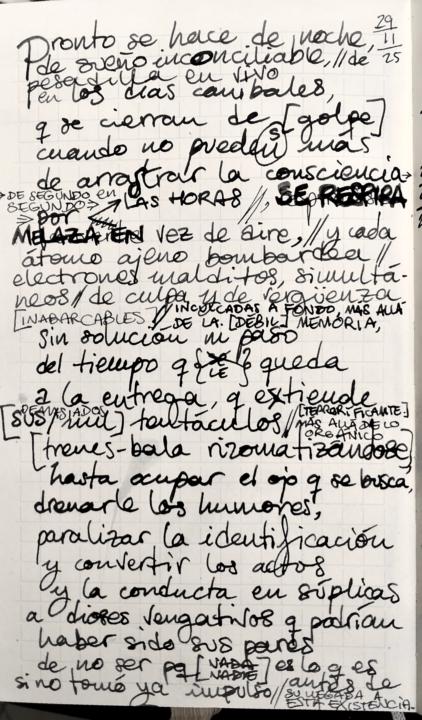 Pronto se hace de noche, 29/11/25
de sueño inconciliable, // de
pesadilla en vivo
en los días caníbales,
q se cierran de [golpe]
cuando no pueden (s) más
de arrastrar la consciencia→
→ DE SEGUNDO en SEGUNDO → LAS HORAS //, SE RESPIRA
por
MELAZA EN vez de aire, // y cada
átomo ajeno bombardea //
electrones malditos, simultá-
neos // de culpa y de vergüenza
[INABARCABLES] // INCULCADAS A FONDO, MÁS ALLÁ
DE LA [DÉBIL] MEMORIA,
sin solución ni paso
del tiempo q {SE LE} queda
a la entrega, q extiende
[SUS/DEMASIADOS mil] tentáculos // [TERRORÍFICAMTE.] MÁS ALLÁ DE LO ORGÁNICO
[trenes-bala rizomatizándose]
hasta ocupar el ojo q se busca,
drenarle los humores,
paralizar la identificación
y convertir los actos
y la conducta en súplicas
a dioses vengativos q podrían
haber sido sus pares
de no ser pq [NADA NADIE] es lo q es
si no tomó ya impulso // antes de
SU LLEGADA A
ESTA EXISTENCIA.